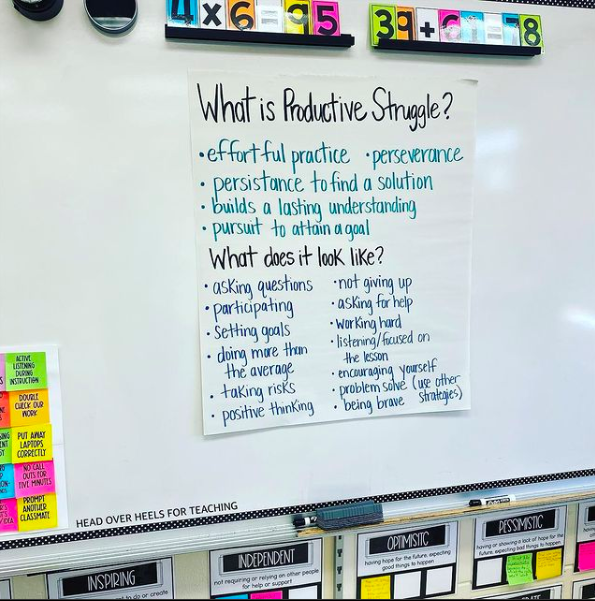 4 x 6 = 95
39 + 6 = 78
What is Productive Struggle?
• effortful practice • perseverance
• persistance to find a solution
• builds a lasting understanding
• pursuit to attain a goal
What does it look like?
• asking questions
• participating
• setting goals
• doing more than
the average
• taking risks
• positive thinking
• not giving up
• asking for help
• working hard
• listening/focused on
the lesson
• encouraging yourself
• problem solve (use other
strategies)
• being brave
ACTIVE
LISTENING
DURING
INSTRUCTION
DOUBLE
CHECK OUR
WORK
PUT AWAY
LAPTOPS
CORRECTLY
NO CALL
OUTS FOR
FIVE MINUTES
PROMPT
ANOTHER
CLASSMATE
HEAD OVER HEELS FOR TEACHING
INSPIRING
to do or create
INDEPENDENT
not requiring or relying on other people
for help or support
OPTIMISITC
having hope for the future, expecting
good things to happen.
PESSIMISTIC
having or showing a lack of hope for the
future, expecting bad things to happen.